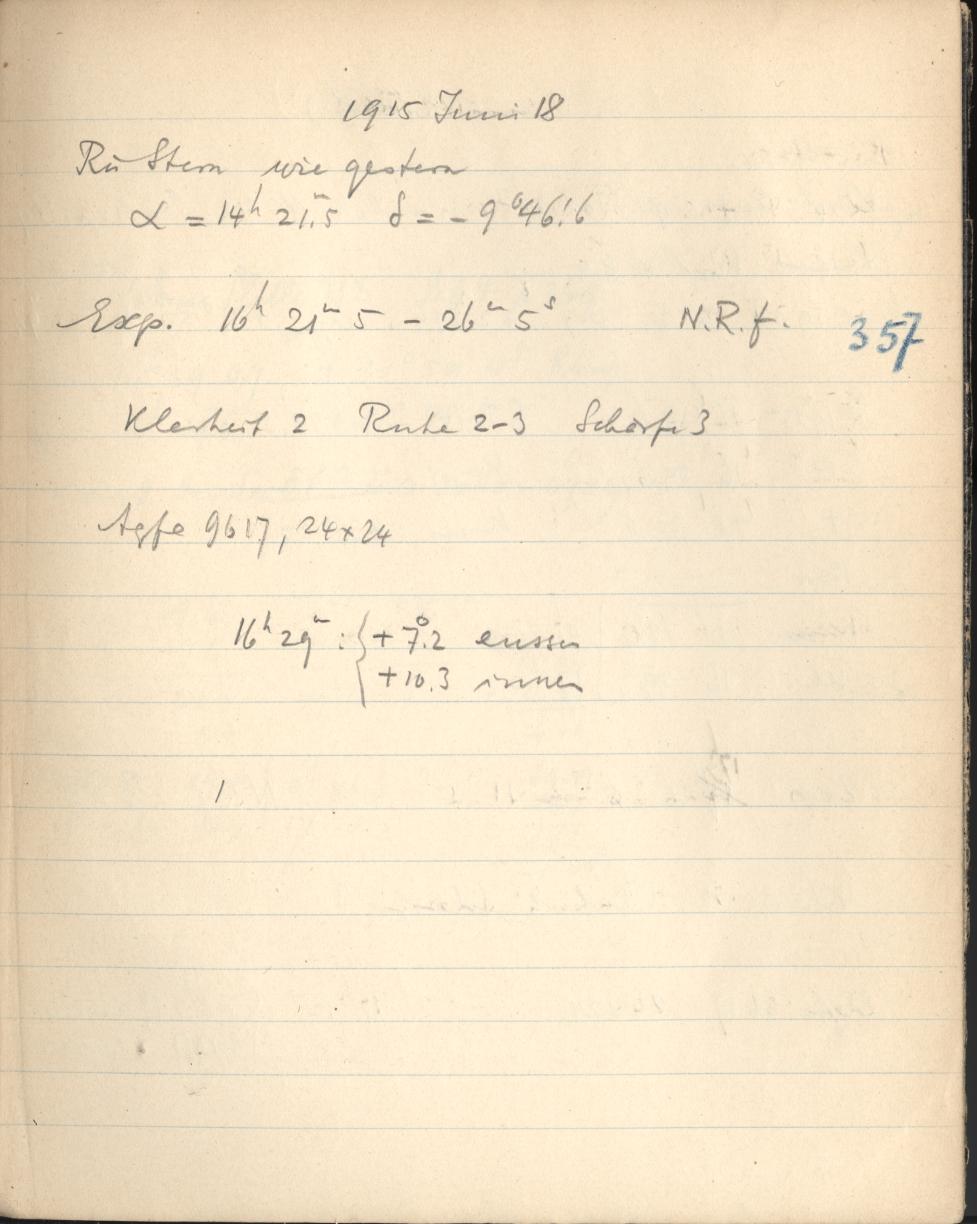 1915 Juni 18
Ru Stern wie gestern
α = 14ʰ 21ᵐ.5 δ = - 9°46!6
Exp. 16ʰ 21ᵐ 5 - 26ᵐ 5ˢ N.R.f. 357
Klarheit 2 Ruhe 2-3 Schärfe 3
Agfa 9617, 24×24
16ʰ 29ᵐ : { + 7°.2 aussen
+10.3 innen